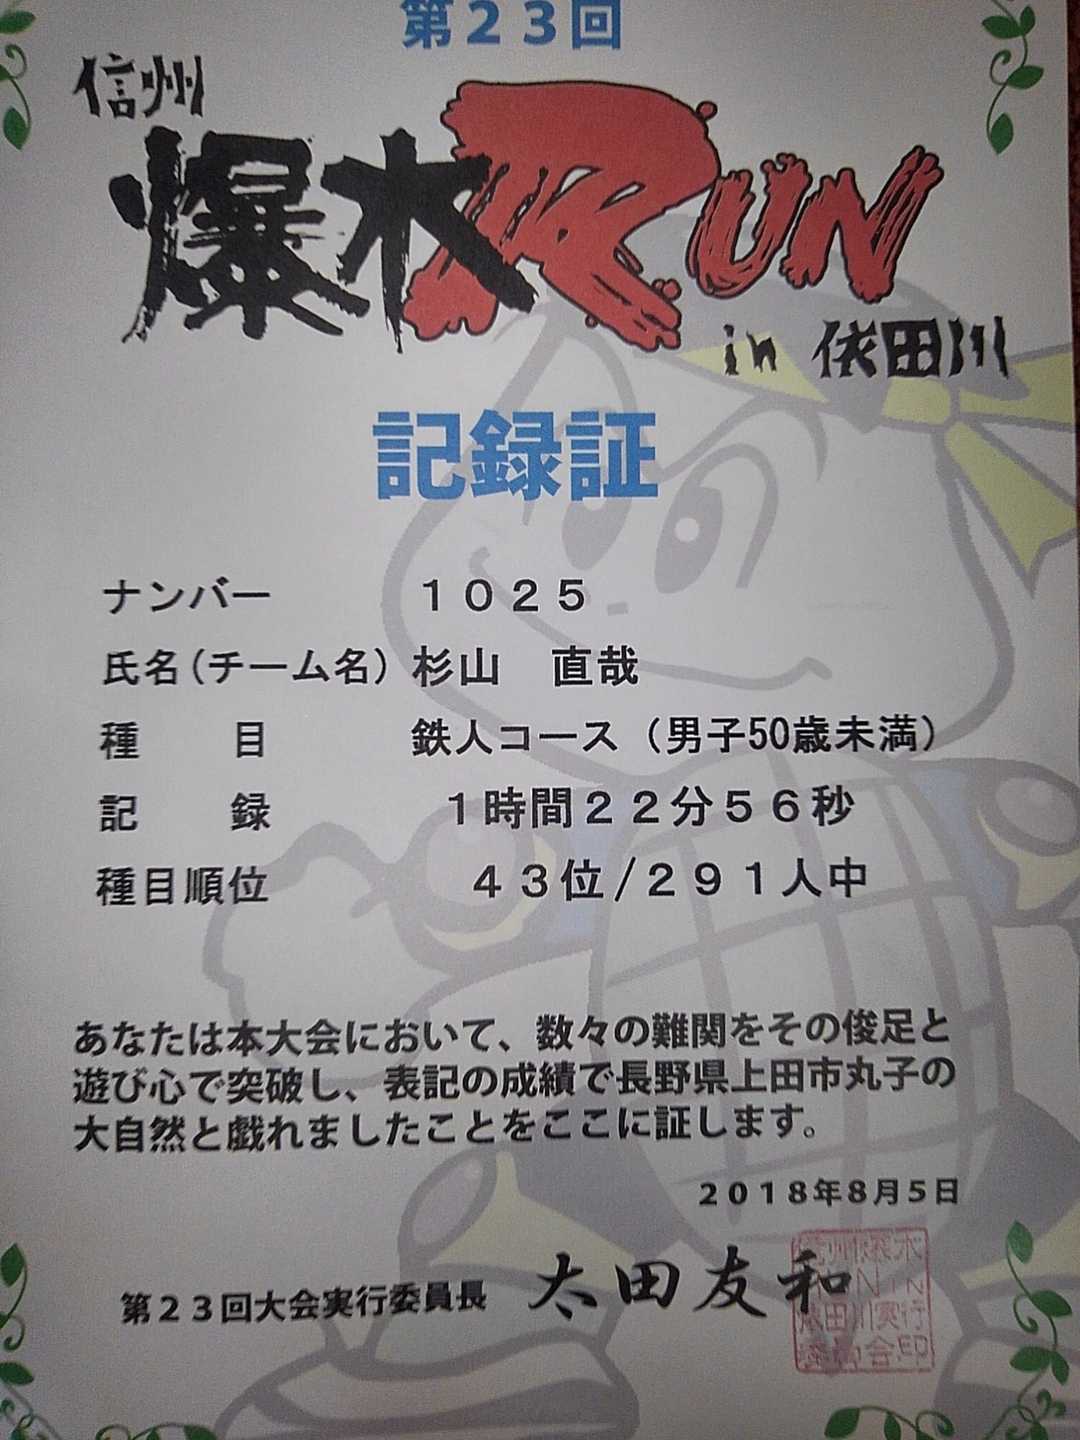 第２３回
信州
爆水RUN
in 依田川
記録証
ナンバー １０２５
氏名(チーム名) 杉山 直哉
種 目 鉄人コース（男子50歳未満）
記 録 １時間２２分５６秒
種目順位 ４３位/２９１人中
あなたは本大会において、数々の難関をその俊足と
遊び心で突破し、表記の成績で長野県上田市丸子の
大自然と戯れましたことをここに証します。
２０１８年８月５日
第２３回大会実行委員長 太田友和